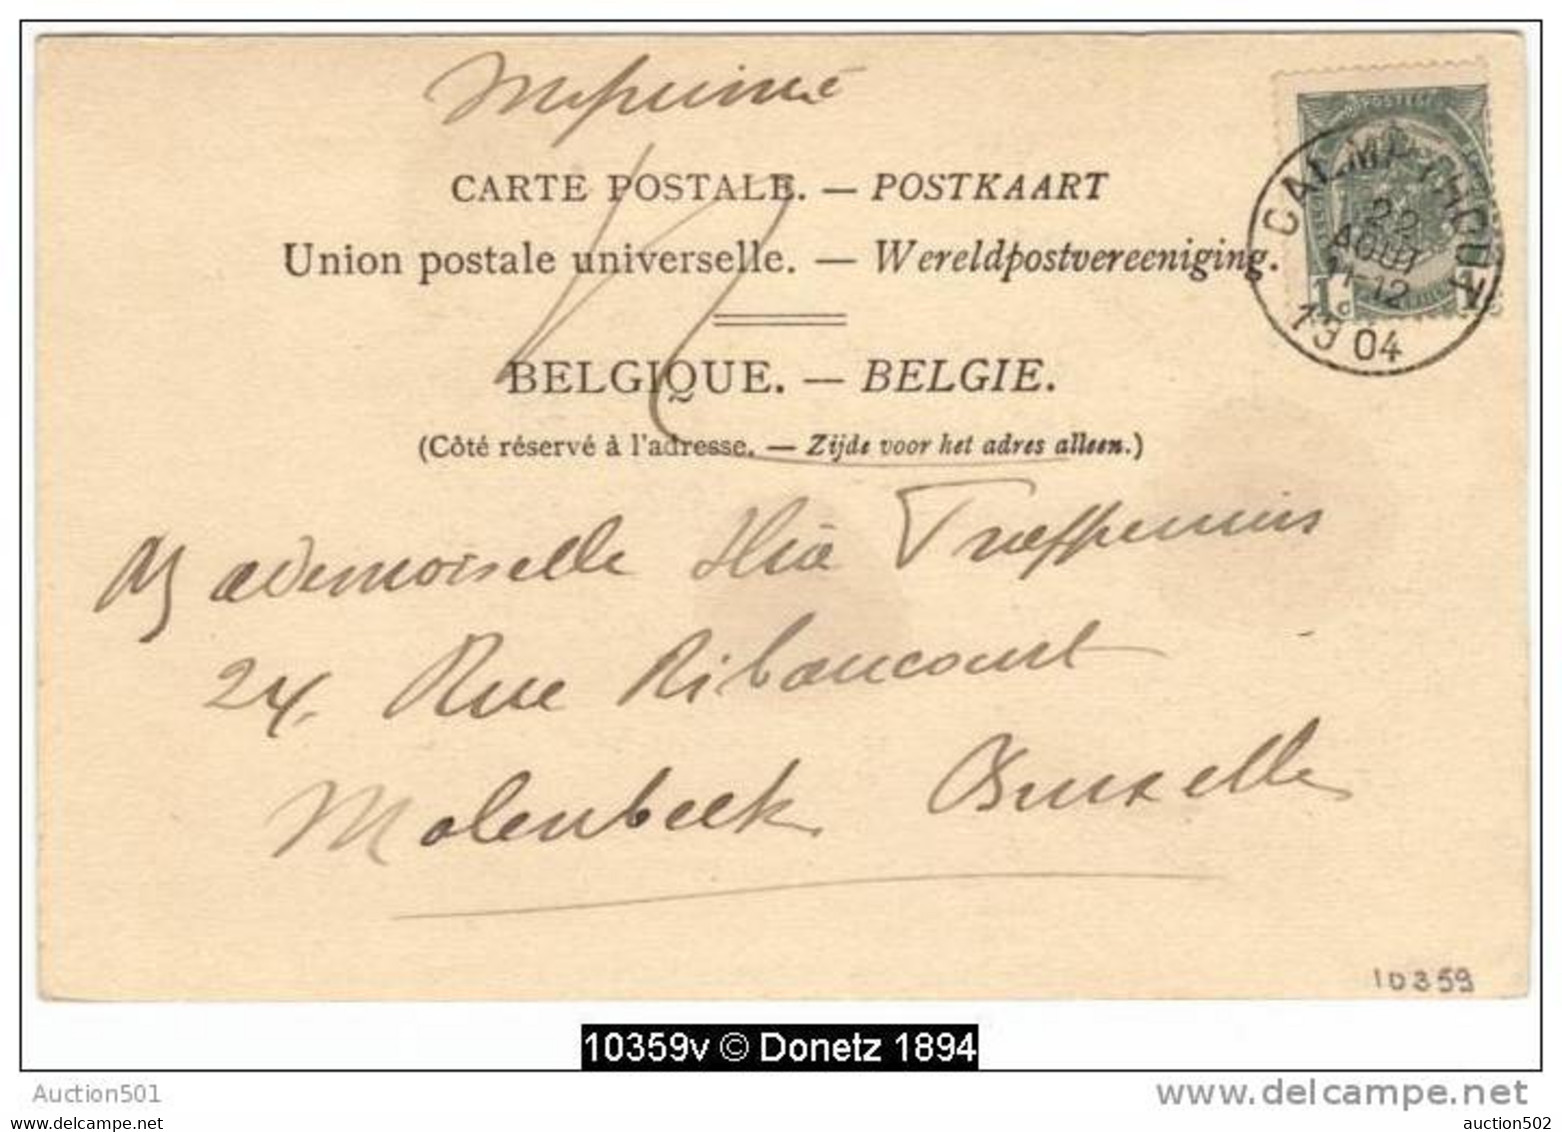 Imprimé
CARTE POSTALE. — POSTKAART
Union postale universelle. — Wereldpostvereeniging.
BELGIQUE. — BELGIE.
(Côté réservé à l'adresse. — Zijde voor het adres alleen.)
CALMPTHOUT
22
AOUT
11-12
1904
Mademoiselle
24. Rue Ribaucourt
Molenbeek Bruxelles
10359
10359v © Donetz 1894
Auction501
www.delcampe.net
www.delcampe.net
auction502